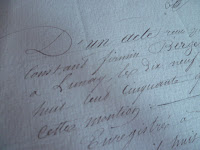 D'un acte reçu
Constans firmin Berge
à Lunay le dix neuf
huit cent cinquante
cette mention
Enregistré à
huit